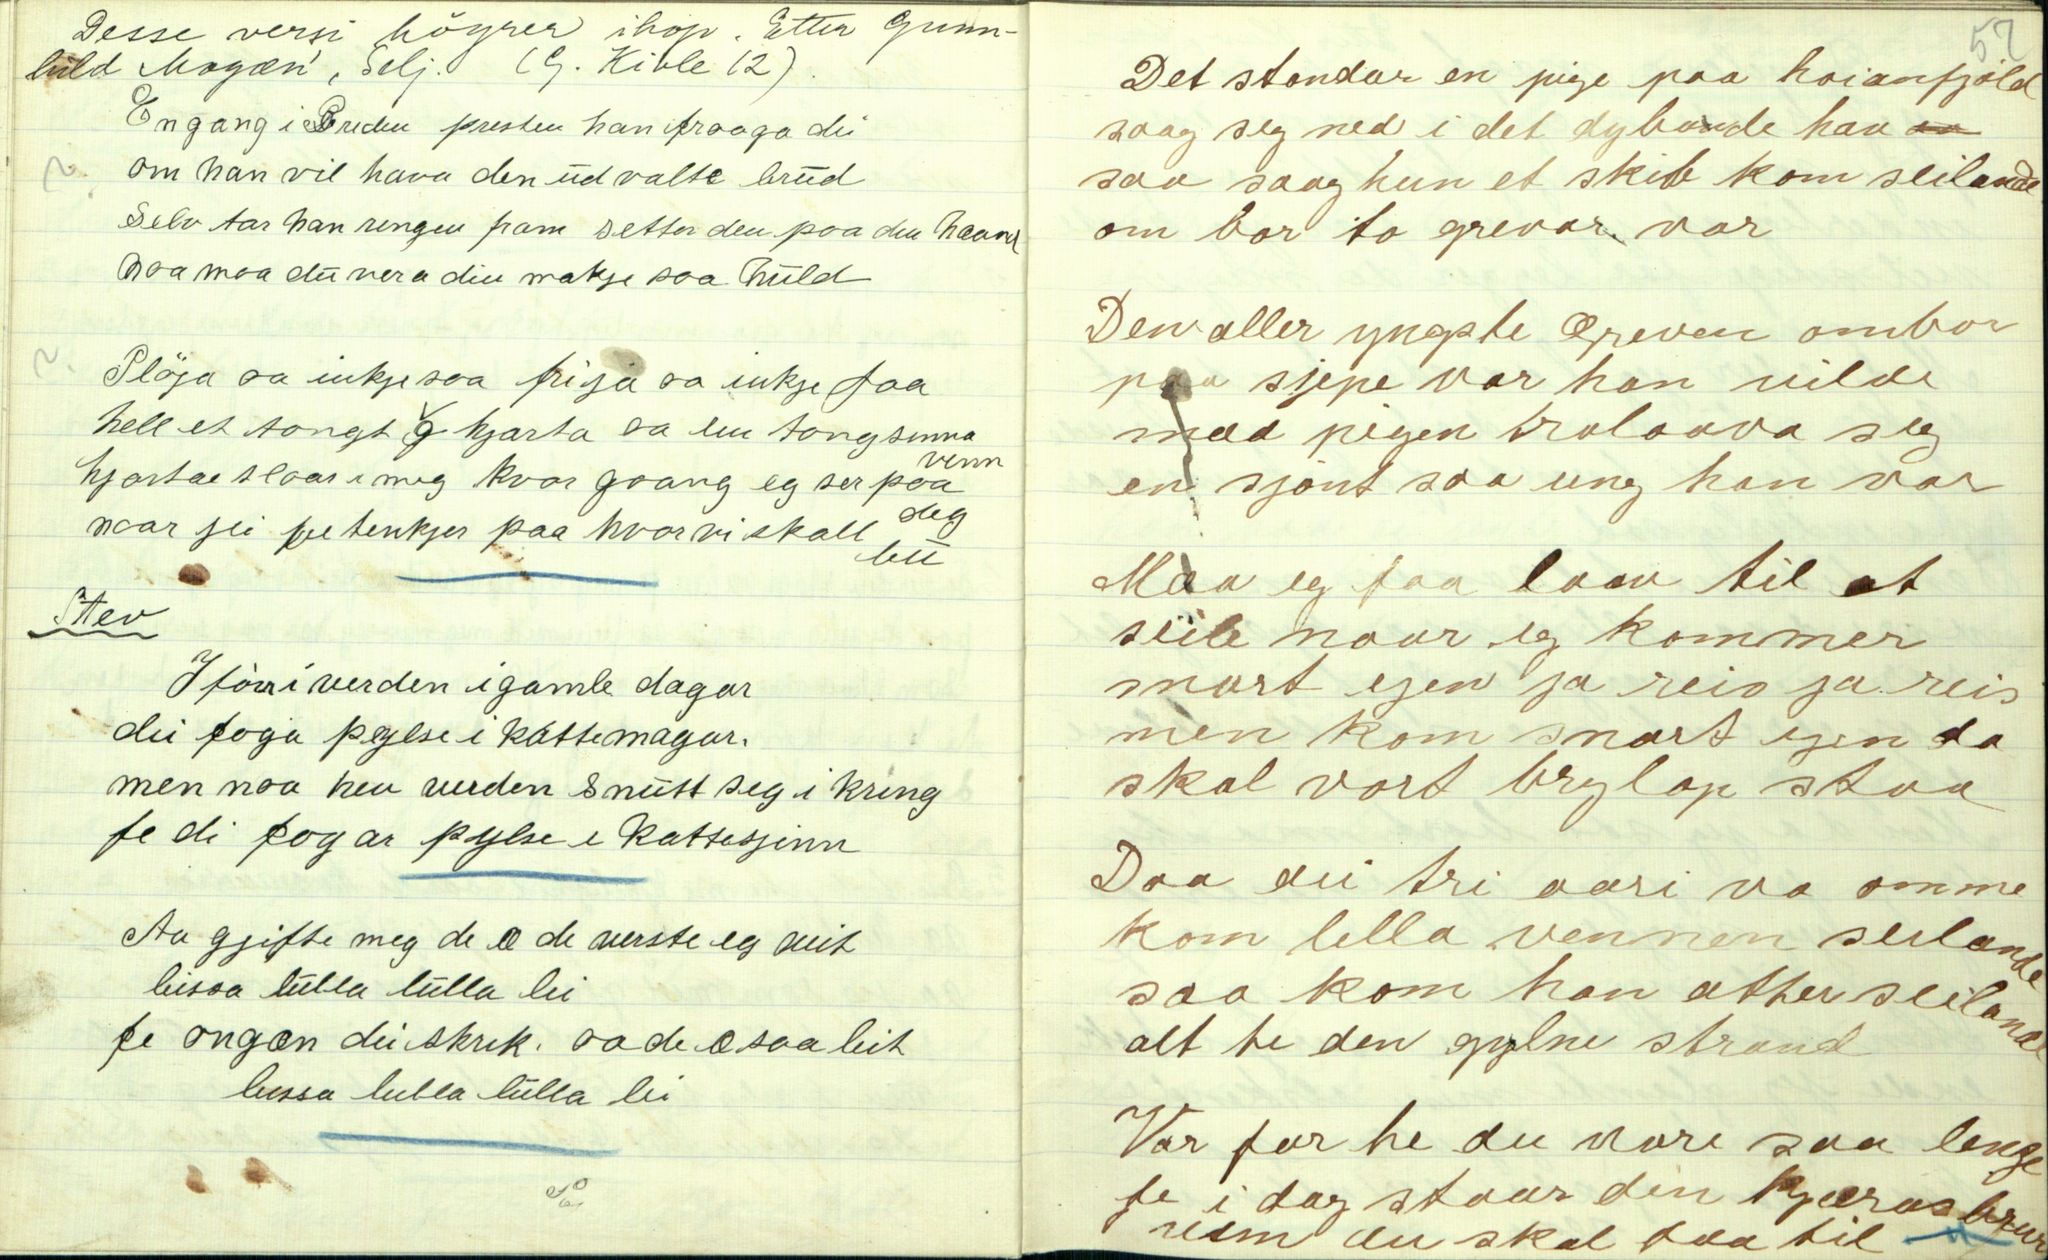 Desse versi höyrer ihop. Etter Gunn-
hild Mogæn, Selj. (G. Kivle 12).
Engang i Breden presten han fraaga di
om han vil hava den üdvalte brüd
Selv tar han ringen fram setter den paa din haand
Naa maa dü vera din makje saa hüld
Plöja aa inkje saa frija aa inkje faa
hell et tongt hjarta aa en tong sinna
venn
hjartae slaar i meg kvar gaang eg ser paa
deg
naar jei tenkjer paa hvor vi skall
bü
Stev
I förri verden i gamle dagar
dei foga pylse i kattemagar.
men naa hev verden snütt seg i kring
fe di fogar pylse i kattesjinn
Au gjifte meg de æ de verste eg veit
büssa lülla lülla lei
fe ongæn dei skrik. aa de æ saa leit
bussa lulla lülla lei
57
Det stondar en pige paa hoianfjöld
saag seg ned i det dyb
saa saag hun et skib kom seilande
om bor to grevar var
Den aller yngste Greven ombor
paa sjepe var han vilde
mæd pigen trulaava seg
en sjönt saa ung han var
Maa eg faa laav til at
seile naar eg kommer
snart egen ja reis ja reis
men kom snart egen da
skal vort brylop staa
Daa dei tri aari va omme
kom lilla vennen seilande
saa kom han atter seilande
alt te den gylne strand
Var for he du vore saa lenge
fe i dag staar din kjæras brur
som du skal faa til